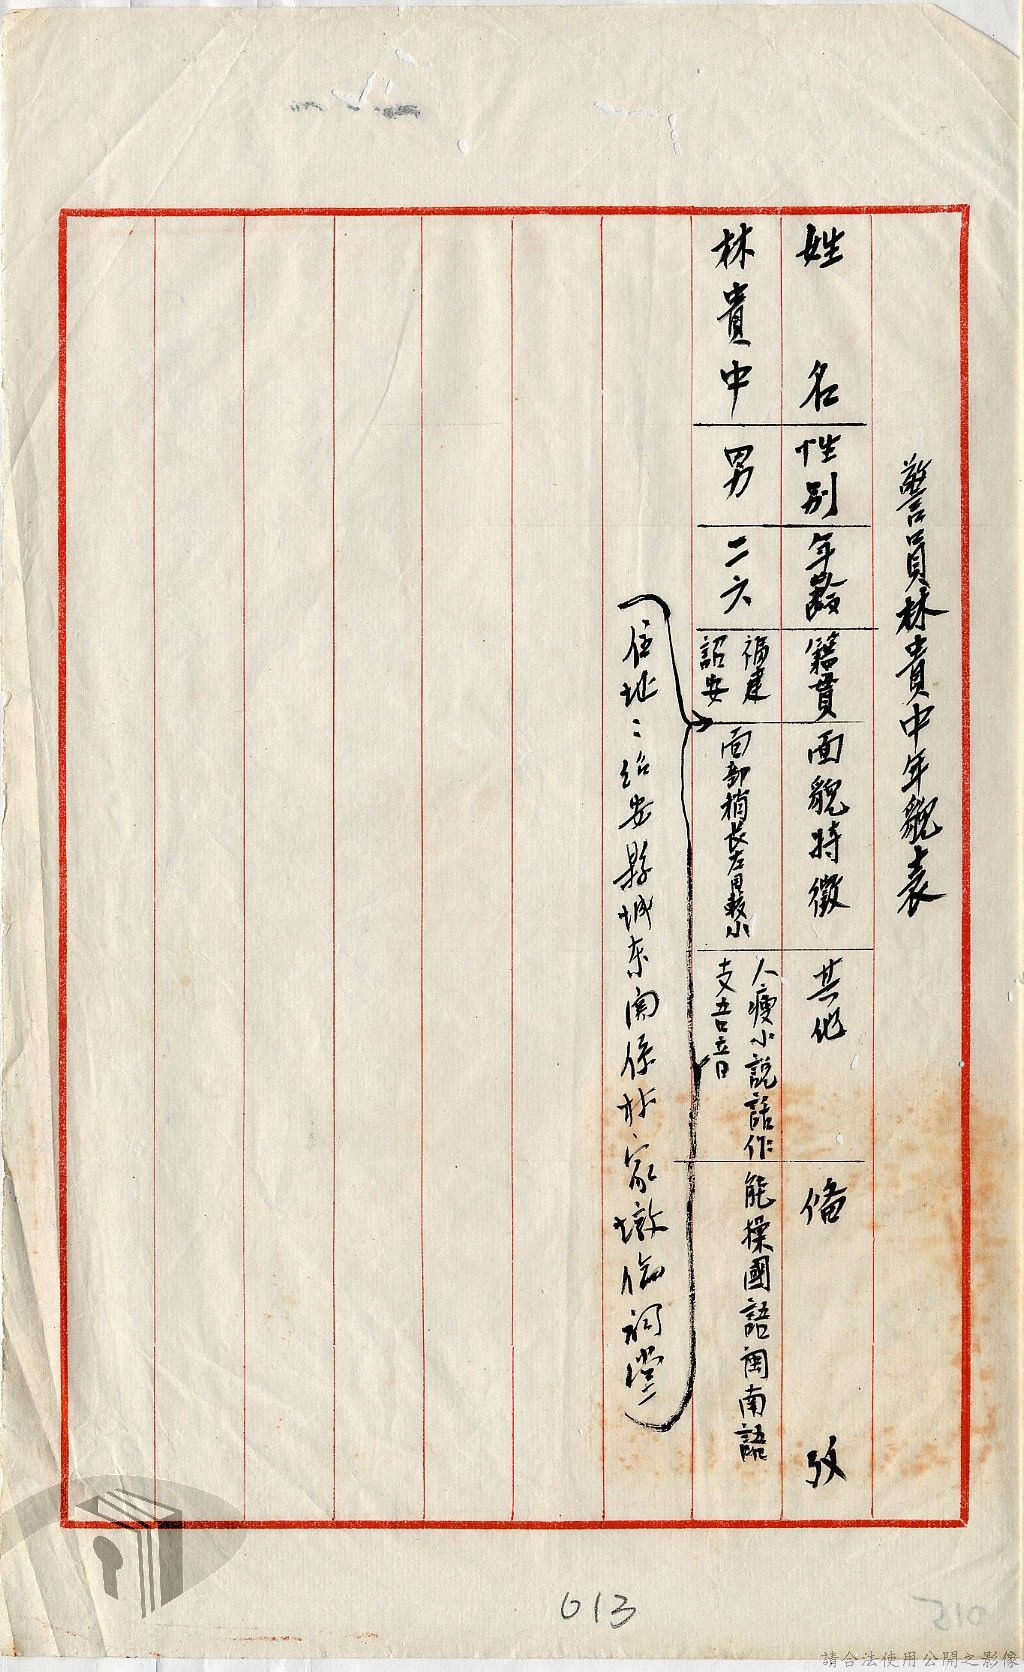 警員林貴中年貌表
姓名 性別 年齡 籍貫 面貌特徵 其他 備攷
林貴中 男 二六 福建詔安 面部稍長左目較小 人瘦小說話作支吾音 能操國語閩南語
住址：詔安縣城東關係林家墩倫祠堂
013
請合法使用公開之影像